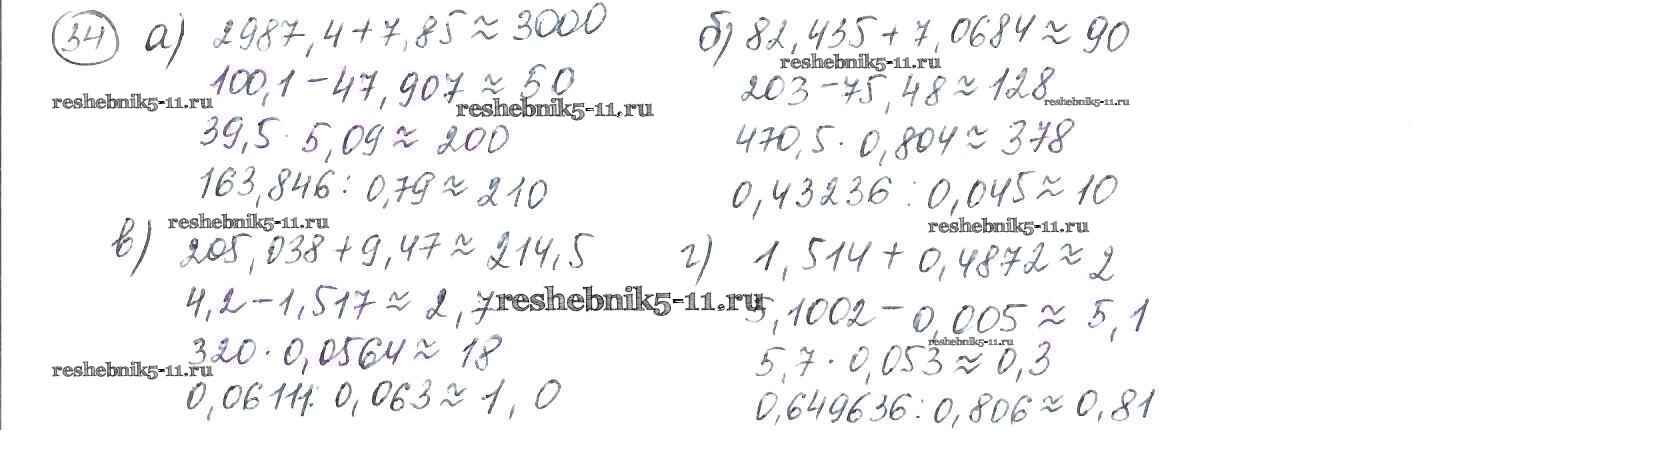 34 а) 2987,4+7,85≈3000
100,1-47,907≈50
39,5·5,09≈200
163,846:0,79≈210
б) 82,435+7,0684≈90
203-75,48≈128
470,5·0,804≈378
0,43236:0,045≈10
в) 205,038+9,47≈214,5
4,2-1,517≈2,7
320·0,0564≈18
0,06111:0,063≈1,0
г) 1,514+0,4872≈2
5,1002-0,005≈5,1
5,7·0,053≈0,3
0,649636:0,806≈0,81
reshebnik5-11.ru
reshebnik5-11.ru
reshebnik5-11.ru
reshebnik5-11.ru
reshebnik5-11.ru
reshebnik5-11.ru
reshebnik5-11.ru
reshebnik5-11.ru
reshebnik5-11.ru